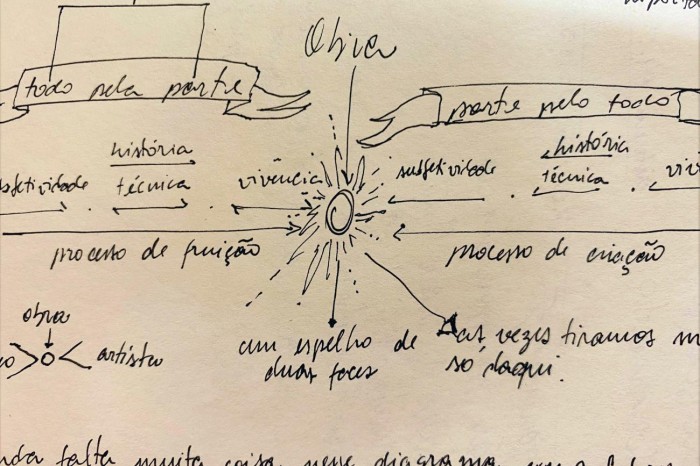 Obra
todo pela parte
parte pelo todo
história
técnica
vivência
subjetividade
história
técnica
processo de fruição
processo de criação
obra
artista
um espelho de
duas faces
às vezes tiramos
só daqui.
falta muita coisa nesse diagrama